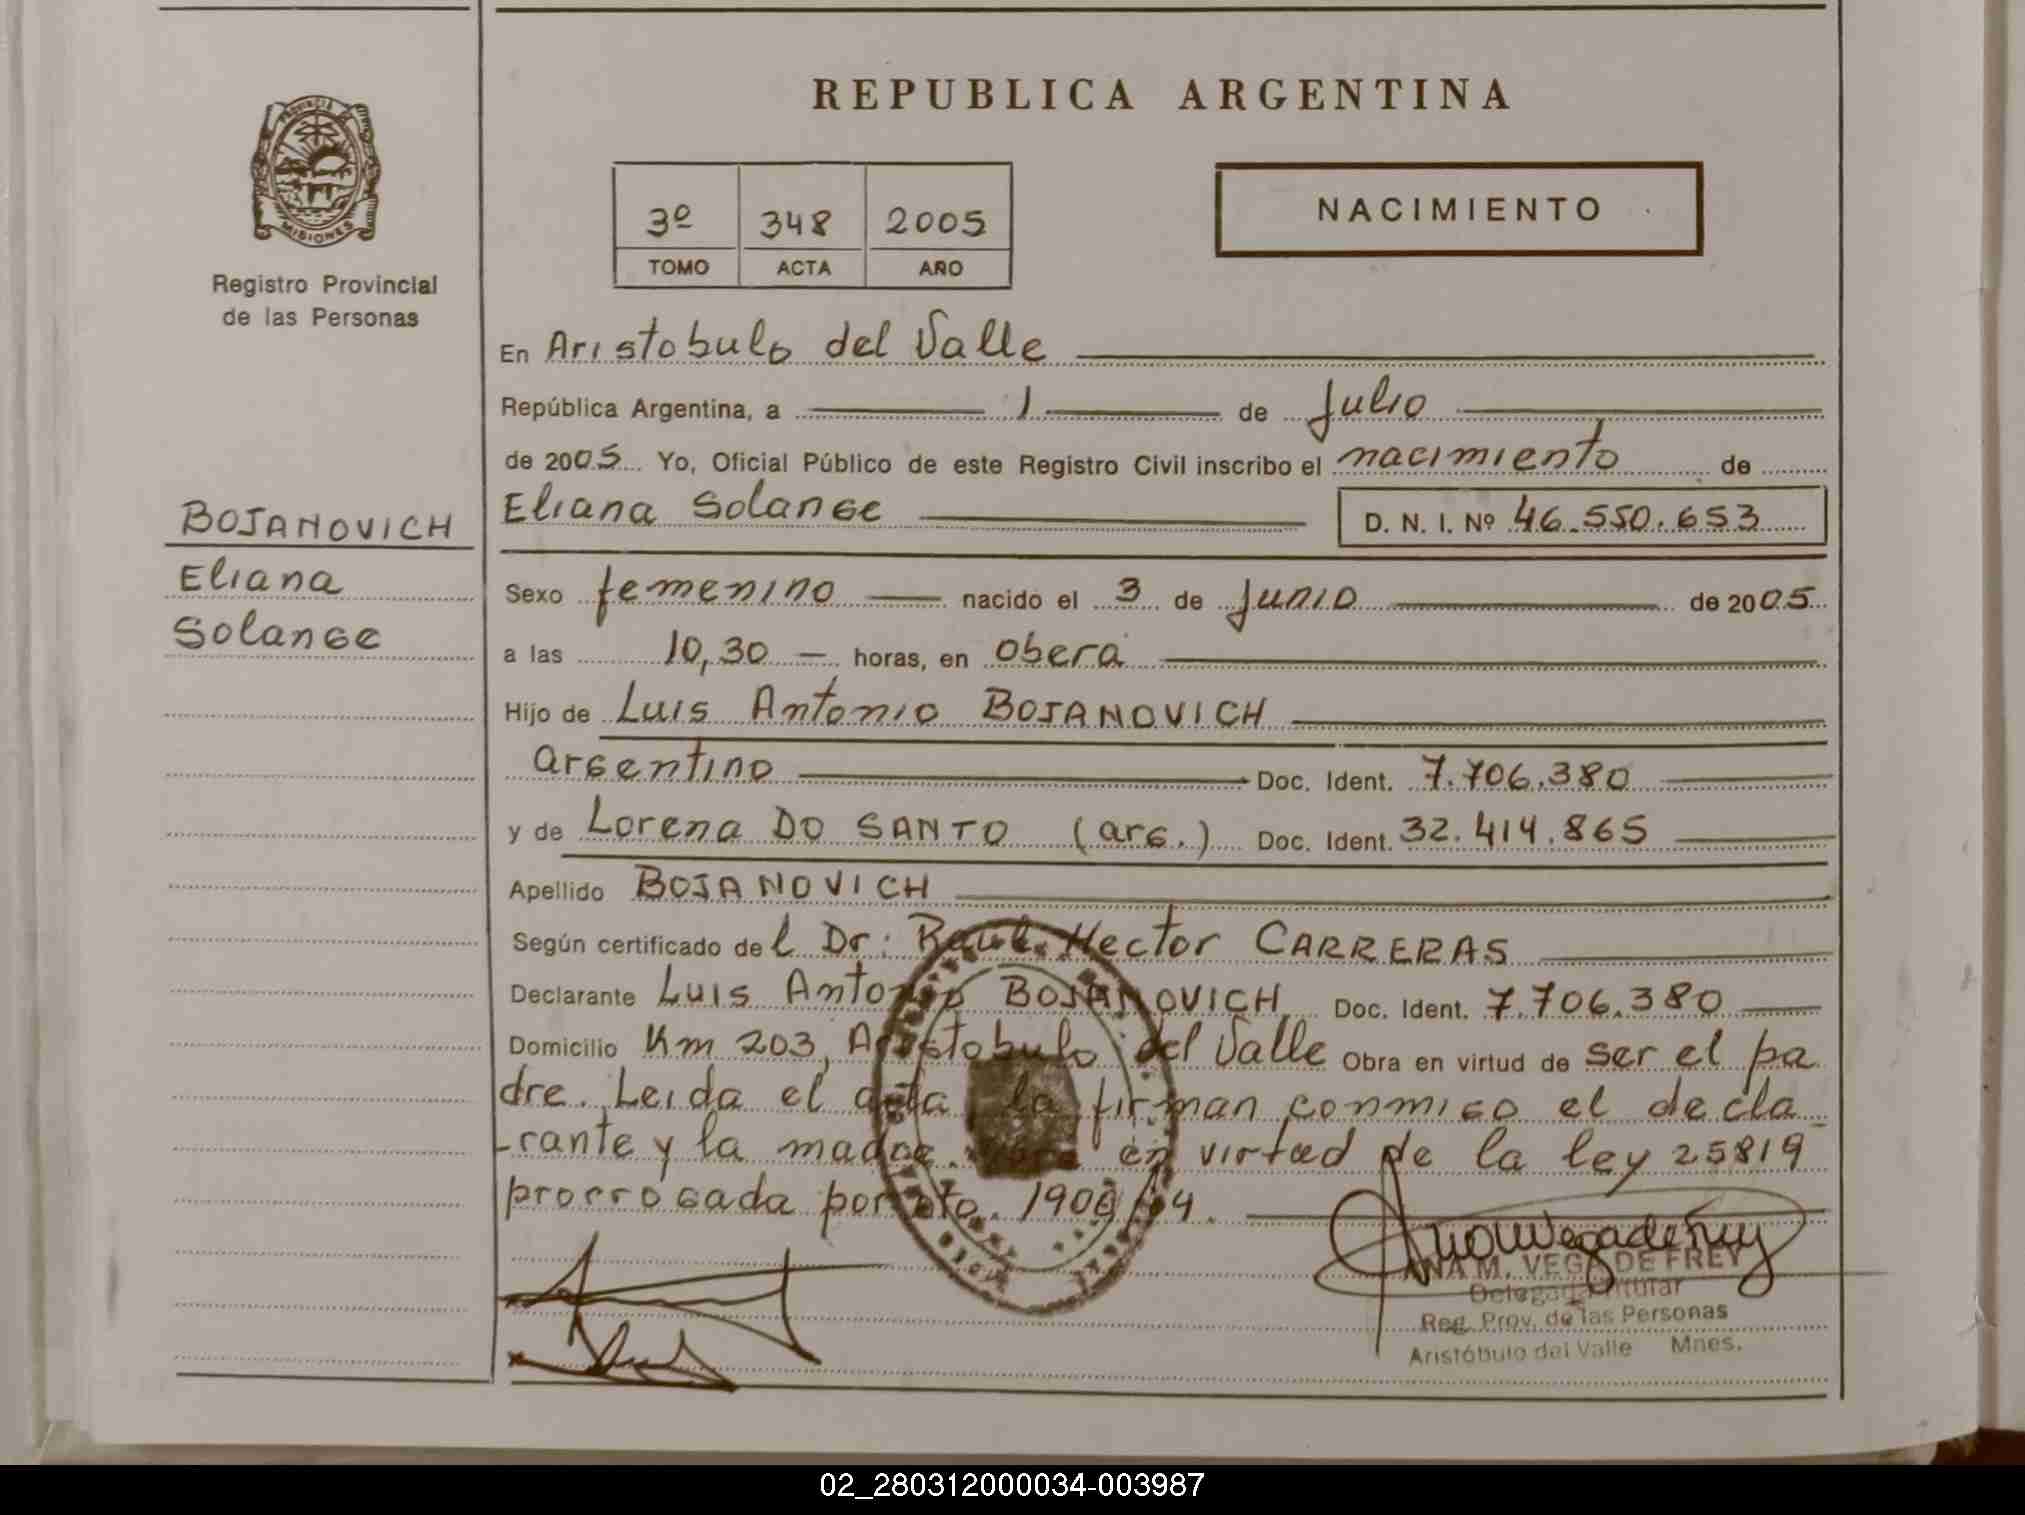 REPUBLICA ARGENTINA
PROVINCIA
MISIONES
Registro Provincial
de las Personas
3º 348 2005
TOMO ACTA AÑO
NACIMIENTO
BOJANOVICH
Eliana
Solange
En Aristobulo del Valle
República Argentina, a 1 de Julio
de 2005 Yo, Oficial Público de este Registro Civil inscribo el nacimiento de
Eliana Solange D. N. I. Nº 46.550.653
Sexo femenino nacido el 3 de Junio de 2005
a las 10,30 — horas, en Oberá
Hijo de Luis Antonio BOJANOVICH
argentino Doc. Ident. 7.706.380
y de Lorena DO SANTO (arg.) Doc. Ident. 32.414.865
Apellido BOJANOVICH
Según certificado del Dr: Raul Hector CARRERAS
Declarante Luis Antonio BOJANOVICH Doc. Ident. 7.706.380
Domicilio Km 203, Aristobulo del Valle Obra en virtud de ser el pa
dre. Leida el acta la firman conmigo el decla_
-rante y la madre. en virtud de la ley 25819
prorrogada por 1906/04.
ANA M. VEGA DE FREY
Delegada Titular
Reg. Prov. de las Personas
Aristóbulo del Valle Mnes.
02_280312000034-003987